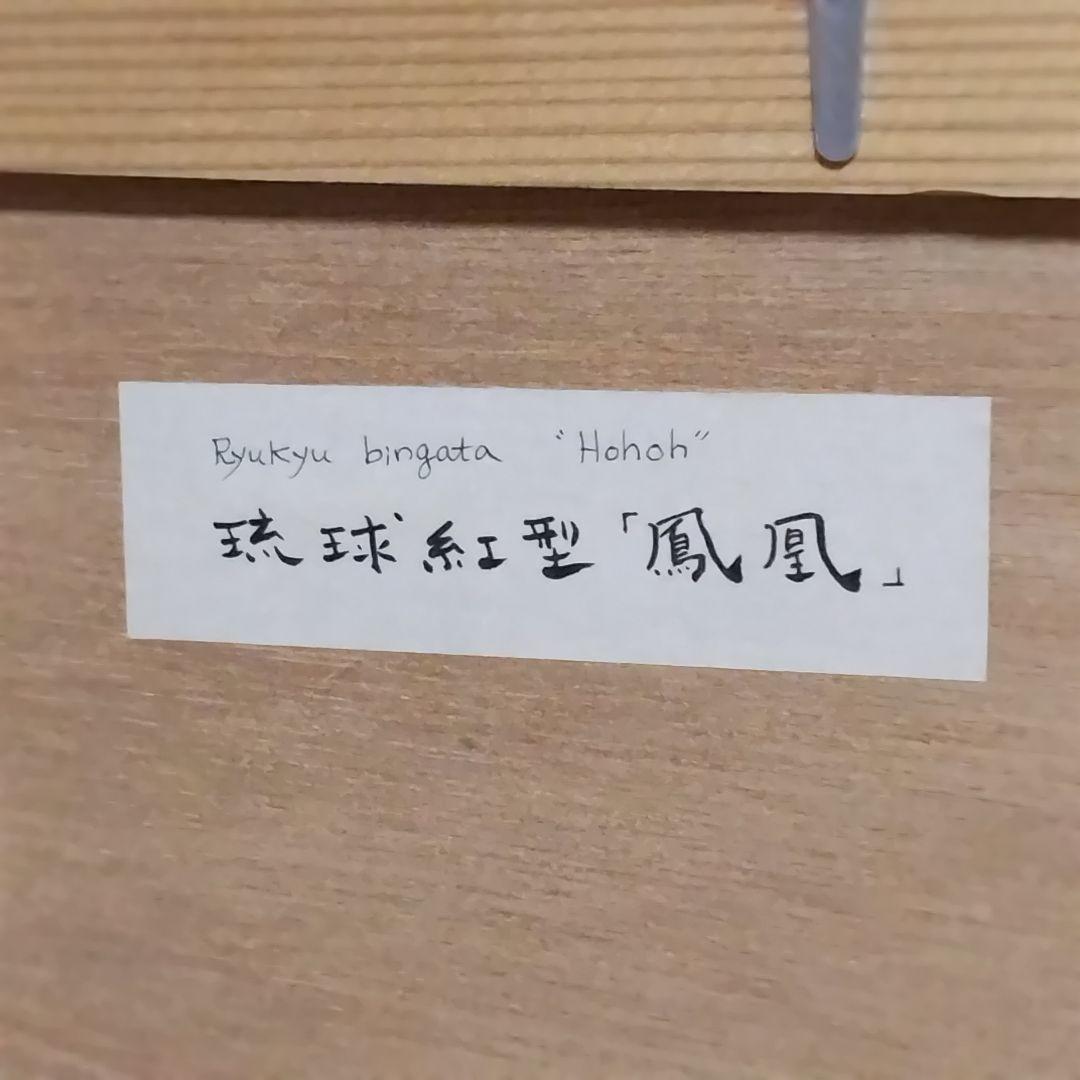 Ryukyu bingata "Hohoh"
琉球紅型「鳳凰」